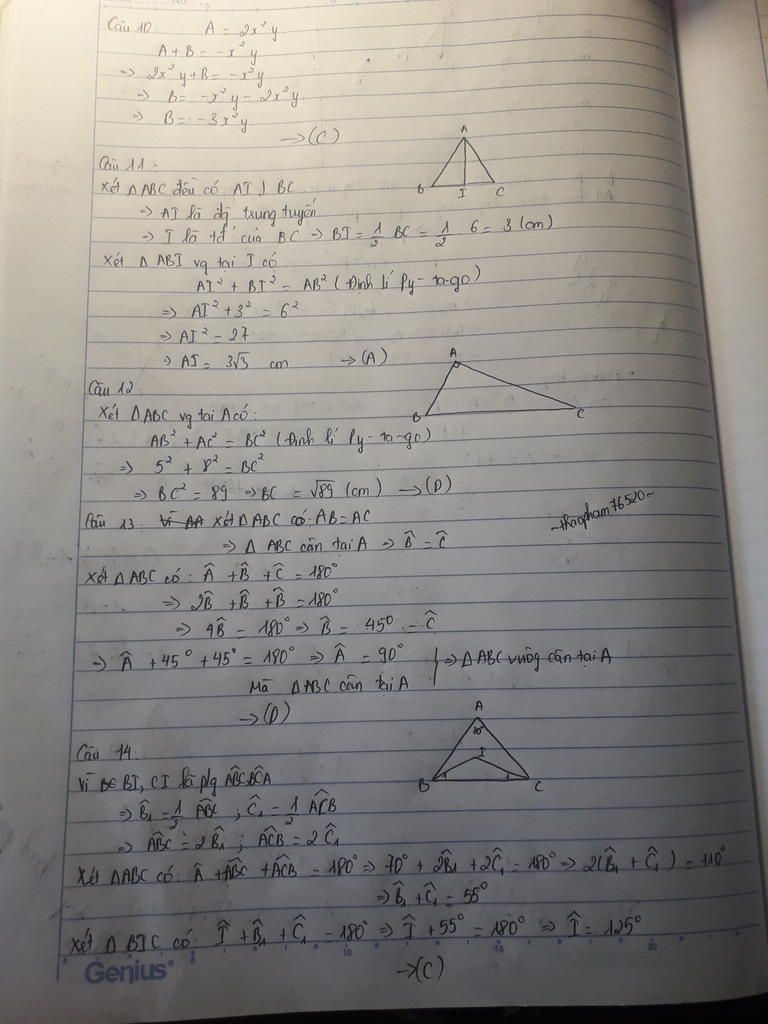 Câu 10. A = 2x²y
A + B = -x²y
=> 2x²y + B = -x²y
=> B = -x²y - 2x²y
=> B = -3x²y
→ (C)
Câu 11:
Xét ΔABC đều có: AI ⊥ BC
=> AI là đg trung tuyến
=> I là tđ của BC => BI = 1/2 BC = 1/2 . 6 = 3 (cm)
Xét Δ ABI vg tại I có
AI² + BI² = AB² (Định lí Py-ta-go)
=> AI² + 3² = 6²
=> AI² = 27
=> AI = 3√3 cm → (A)
A
B I C
Câu 12:
Xét ΔABC vg tại A có:
AB² + AC² = BC² (Định lí Py-ta-go)
=> 5² + 8² = BC²
=> BC² = 89 => BC = √89 (cm) → (D)
A
B C
~thaopham76520~
Câu 13. Xét ΔABC có: AB = AC
=> Δ ABC cân tại A => B̂ = Ĉ
Xét ΔABC có: Â + B̂ + Ĉ = 180°
=> 2B̂ + B̂ + B̂ = 180°
=> 4B̂ = 180° => B̂ = 45° = Ĉ
=> Â + 45° + 45° = 180° => Â = 90° => ΔABC vuông cân tại A
Mà ΔABC cân tại A
→ (D)
Câu 14:
Vì BI, CI là p/g ABC, BCA
=> B̂₁ = 1/2 ABC ; Ĉ₁ = 1/2 ACB
=> ABC = 2B̂₁ ; ACB = 2Ĉ₁
A
70°
I
B 1 1 C
Xét ΔABC có: Â + ABC + ACB = 180° => 70° + 2B̂₁ + 2Ĉ₁ = 180° => 2(B̂₁ + Ĉ₁) = 110°
=> B̂₁ + Ĉ₁ = 55°
Xét Δ BIC có: Î + B̂₁ + Ĉ₁ = 180° => Î + 55° = 180° => Î = 125°
→ (C)
Genius 5 10 15 20